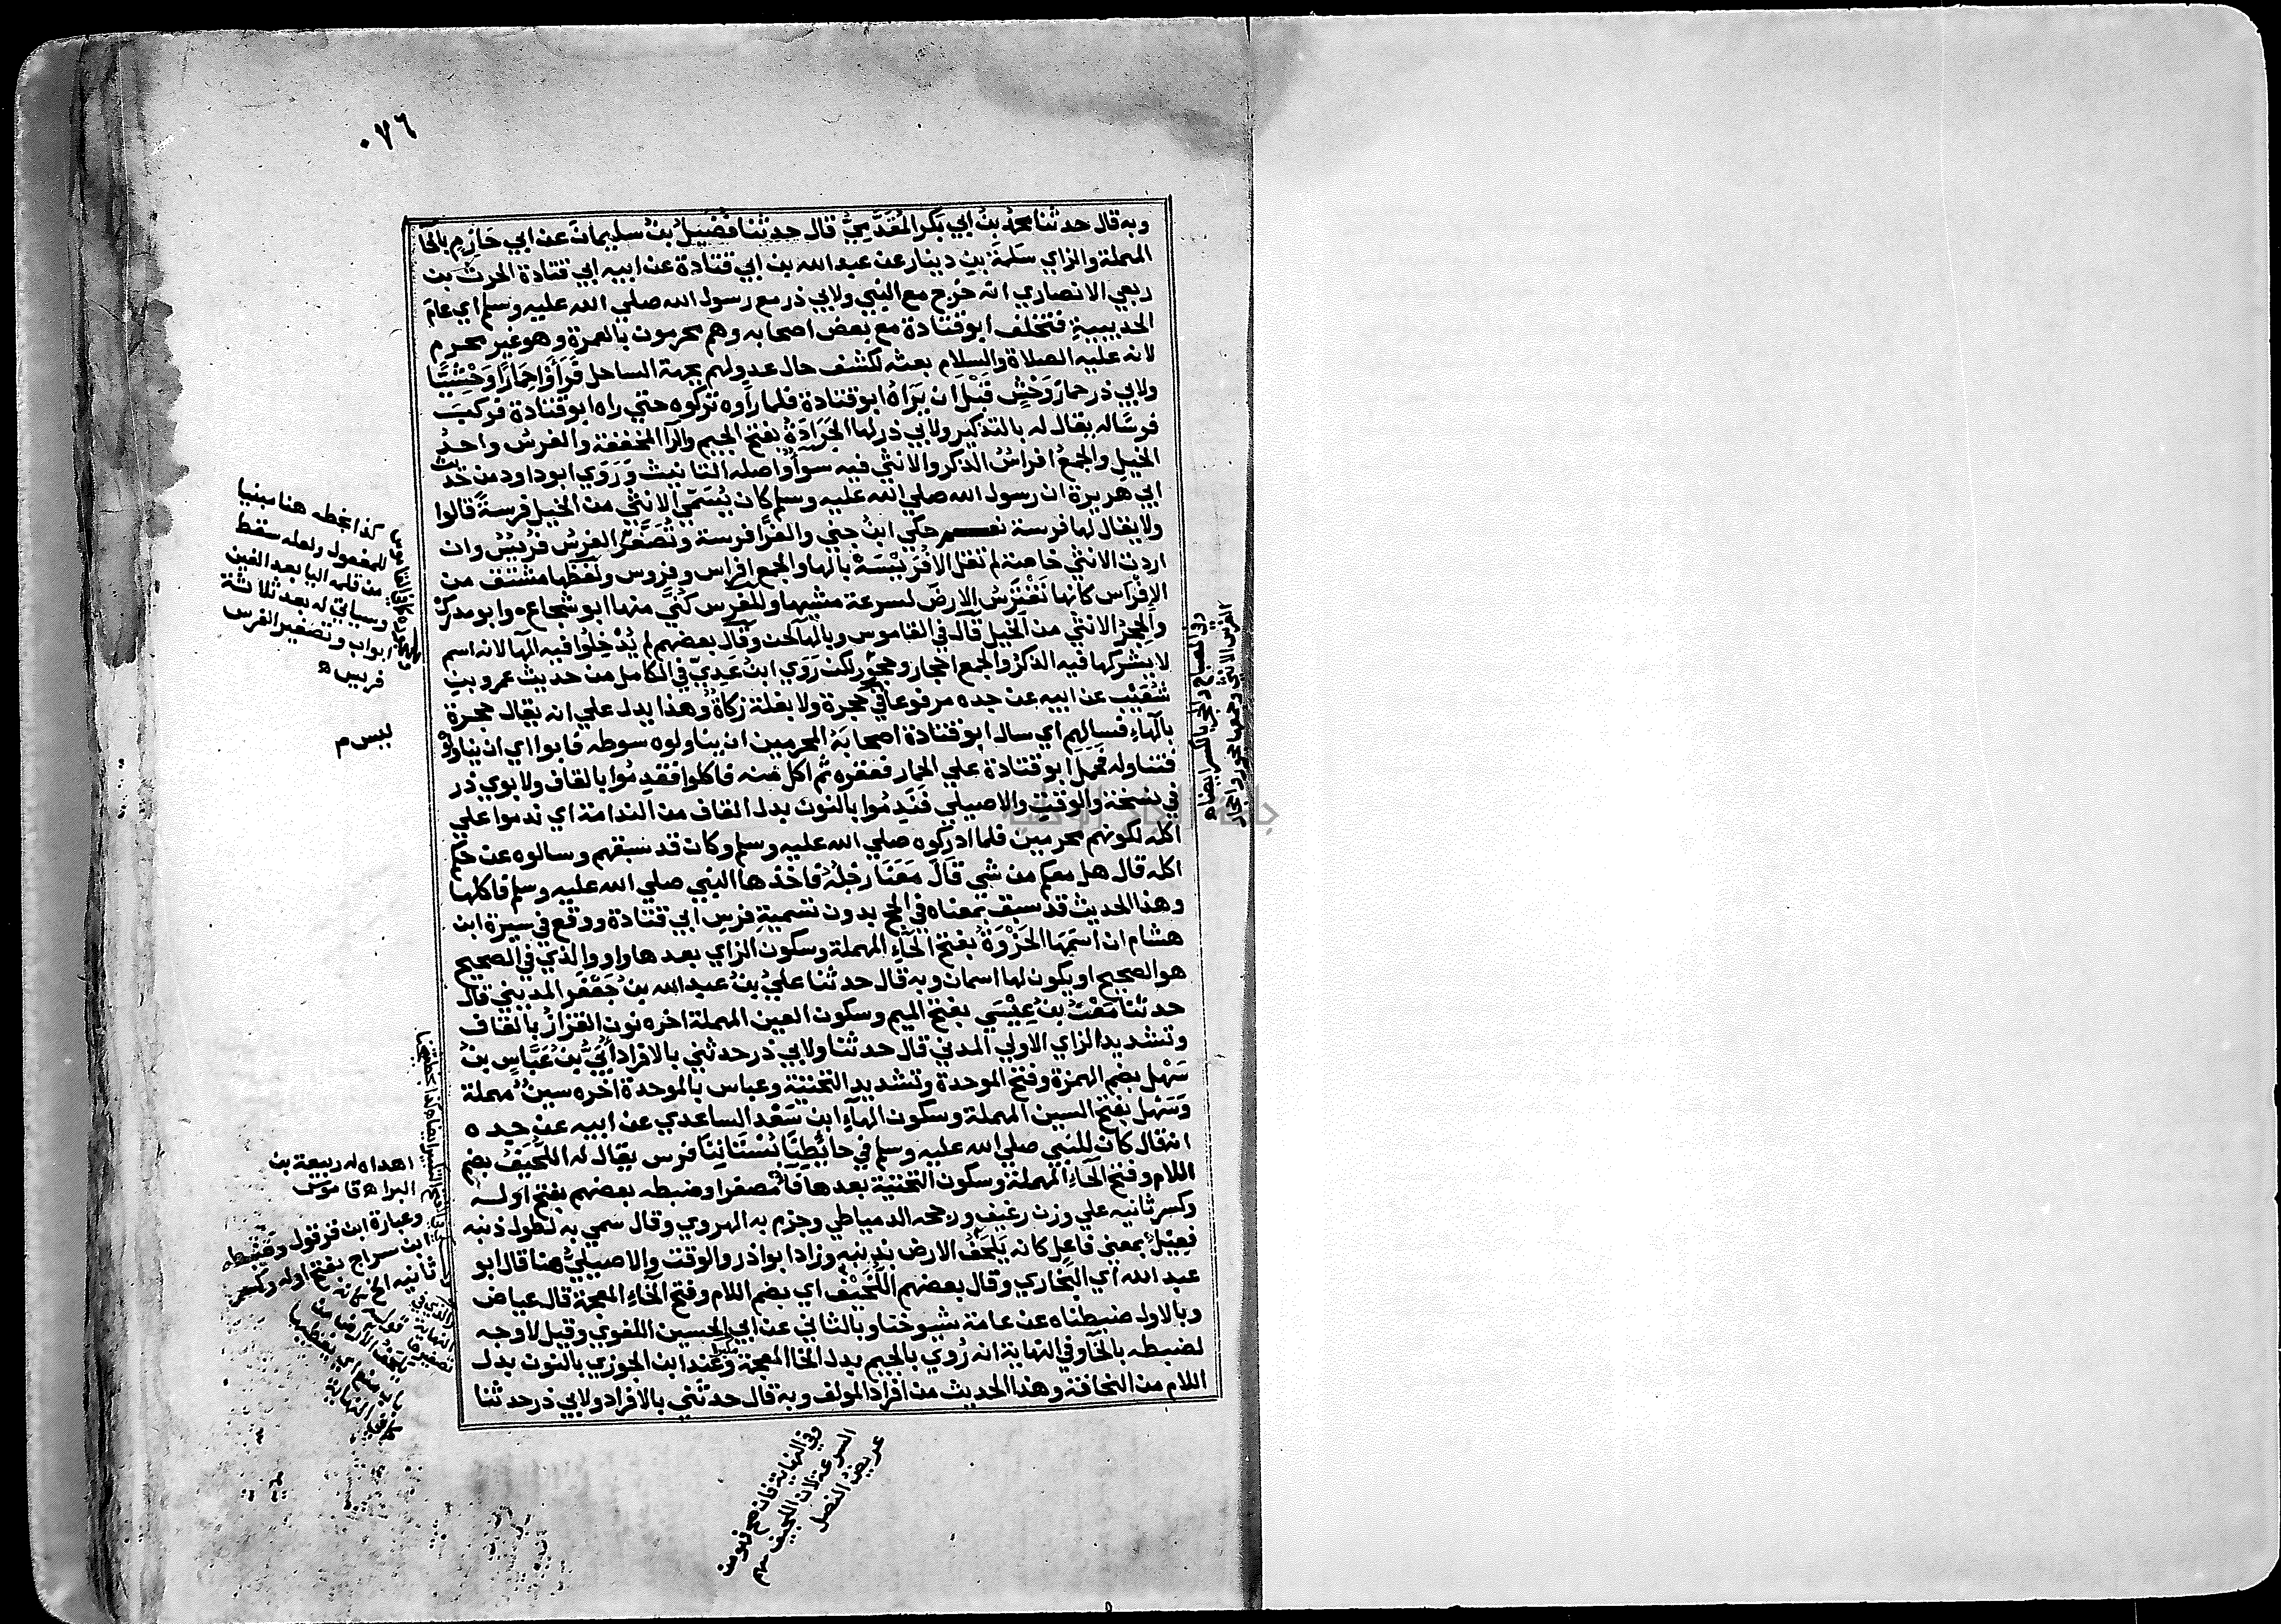 ٠٧٦
وبه قال حدثنا محمد بن ابي بكر المُقَدَّمِيُّ قال حدثنا فُضَيلُ بنُ سليمان عن ابي حَازِمٍ بالحا
المهملة والزاي سَلَمَةَ بنِ دينار عن عبد الله بن ابي قتادة عن ابيه ابي قتادة الحرث بن
ربعي الانصاري انه خرج مع النبي ولابي ذر مع رسول الله صلي الله عليه وسلم اي عام
الحديبية فتخلف ابو قتادة مع بعض اصحابه وهم محرمون بالعمرة وهو غير محرم
لانه عليه الصلاة والسلام بعثه لكشف حال عدو لهم بجهة الساحل فَرَأَوْا حِمَارًا وَحْشِيًّا
ولابي ذر حمارَ وَحْشٍ قَبْلَ ان يَرَاهُ ابو قتادة فلما رأوه تركوه حتي راه ابو قتادة فركبَ
فرسًا له يقال له بالتذكير ولابي ذر لها الجَرَادَةُ بفتح الجيم والرا المخففة والفرس واحدُ
الخيلِ والجمعُ افراسُ الذكر والانثي فيه سواء واصله التانيث وَرَوَي ابو داود من حديث
ابي هريرة ان رسول الله صلي الله عليه وسلم كان يُسَمّي الانثي من الخيل فرسةً قالوا
ولا يقال لها فرسة نعم حكي ابن جني والفرّا فرسة وتُصَغَّرُ الفرسُ فُرَيْسٌ وان
اردت الانثي خاصة لم تقل الا فُرَيْسَةٌ بالها والجمع افراس وفروس ولفظها مشتق من
الافتراس كانها تَفْتَرِسُ الارضَ لسرعة مشيها وللفرس كُنًي منها ابو شجاع وابو مدرك
والحِجْرُ الانثي من الخيل قال في القاموس وبالهاء لحن وقال بعضهم لم يُدْخِلُوا فيه الها لانه اسم
لا يشركها فيه الذكرُ والجمع احجار وحجور لكن رَوَي ابنُ عَدِيّ في الكامل من حديث عمرو بن
شُعَيْب عن ابيه عن جده مرفوعا في حجرة ولا بغلة زكاةٌ وهذا يدل علي انه يقال حجرة
بالهاء فسالهم اي سال ابو قتادة اصحابَهُ المحرمين ان يناولوه سوطه فابوا اي ان يناولوه
فتناوله فحَمَلَ ابو قتادة علي الحمار فعقره ثم اكل منه فاكلوا فقدِمُوا بالقاف ولابوي ذر
في نسخة والوقت والاصيلي فَنَدِمُوا بالنون بدل القاف من الندامة اي ندموا علي
اكله لكونهم محرمين فلما ادركوه صلي الله عليه وسلم وكان قد سبقهم وسالوه عن حكم
اكله قال هل معكم من شي قال مَعَنَا رِجْلُهُ فاخذها النبي صلي الله عليه وسلم فاكلها
وهذا الحديث قد سبق بمعناه في الحج بدون تسميةِ فرسِ ابي قتادة ووقع في سيرة ابن
هشام ان اسمها الحَزْوَةُ بفتح الحَاءِ المهملة وسكون الزاي بعدها واو والذي في الصحيح
هو الصحيح او يكون لها اسمان وبه قال حدثنا عليُّ بنُ عبد الله بن جَعْفَر المديني قال
حدثنا مَعْنُ بنُ عِيْسَي بفتح الميم وسكون العين المهملة اخره نون القزازُ بالقاف
وتشديد الزاي الاولي المدني قال حدثنا ولابي ذر حدثني بالافراد أُبَيُّ بنُ عَبَّاسِ بنُ
سَهْلٍ بضم الهمزة وفتح الموحدة وتشديد التحتية وعباس بالموحدة اخره سينٌ مهملة
وَسَهْلٍ بفتح السين المهملة وسكون الهاءِ ابن سَعْد الساعدي عن ابيه عن جده
انه قال كان للنبي صلي الله عليه وسلم في حائطنا بُسْتَانِنَا فرس يقال له اللُّحَيْفُ بضم
اللام وفتح الحَاءِ المهملة وسكون التحتية بعدها فاٌ مصغرا وضبطه بعضهم بفتح اوله
وكسر ثانيه علي وزن رغيف ورجحه الدمياطي وجزم به الهروي وقال سمي به لطول ذنبه
فَعِيْلٌ بمعني فاعِل كانه يَلْحَفُ الارض بذنبه وزاد ابوا ذر والوقت والاصيليُّ هنا قال ابو
عبد الله اي البخاري وقال بعضهم اللُّخَيْفُ اي بضم اللام وفتح الخاءِ المعجمة قال عياض
وبالاول ضبطناه عن عامة شيوخنا وبالثاني عن ابي الحسين اللغوي وقيل لا وجه
لضبطه بالخَا وفي النهاية انه رُوي بالجيم بدل الخا المعجمة وعند ابن الجوزي بالنون بدل
اللام من النحافة وهذا الحديث من افراد المولف وبه قال حدثني بالافراد ولابي ذر حدثنا
كذا بخطه هنا مبنيا
للمفعول ولعله سقط
من قلمه اليا بعد الغين
وسياتي له بعد ثلاثة
ابواب وتصغير الفرس
فريس ه
ليس م
وفي المصباح والحجر بالكسر ايضا
الفرس الانثي وجمعها حجور واحجار
اهداه له ربيعة بن
البراء ه قاموس
وعبارة ابن قرقول وضبطه
ابن سراج بفتح اوله وكسر
ثانيه الخ
يلحف الارض من
اي يغطيها
النهاية
وفي النهاية فان صح فهو من
السرعة لان اللجيف سهم
عريض النصل